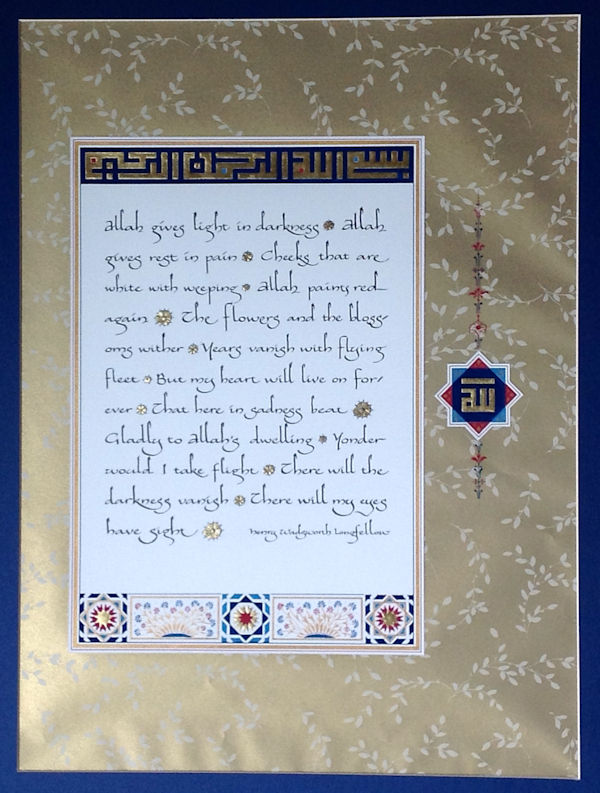 بسم الله الرحمن الرحيم
allah gives light in darkness allah
gives rest in pain Cheeks that are
white with weeping allah paints red
again The flowers and the bloss-
oms wither Years vanish with flying
fleet But my heart will live on for-
ever That here in sadness beat
Gladly to allah's dwelling Yonder
would I take flight There will the
darkness vanish There will my eyes
have sight Henry Wadsworth Longfellow
الله